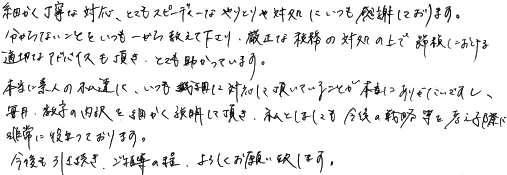 細かく丁寧な対応、とてもスピーディーなやりとりや対処にいつも感謝しております。
分からないことをいつも一から教えて下さり、厳正な税務の対処の上で節税における
適切なアドバイスも頂き、とても助かっています。
本当に素人の私達に、いつも親切に対応して頂いていることが本当にありがたいですし、
毎月、数字の内訳を細かく説明して頂き、私としましても今後の戦略等を考える際に
非常に役立っております。
今後も引き続き、ご指導の程、よろしくお願い致します。